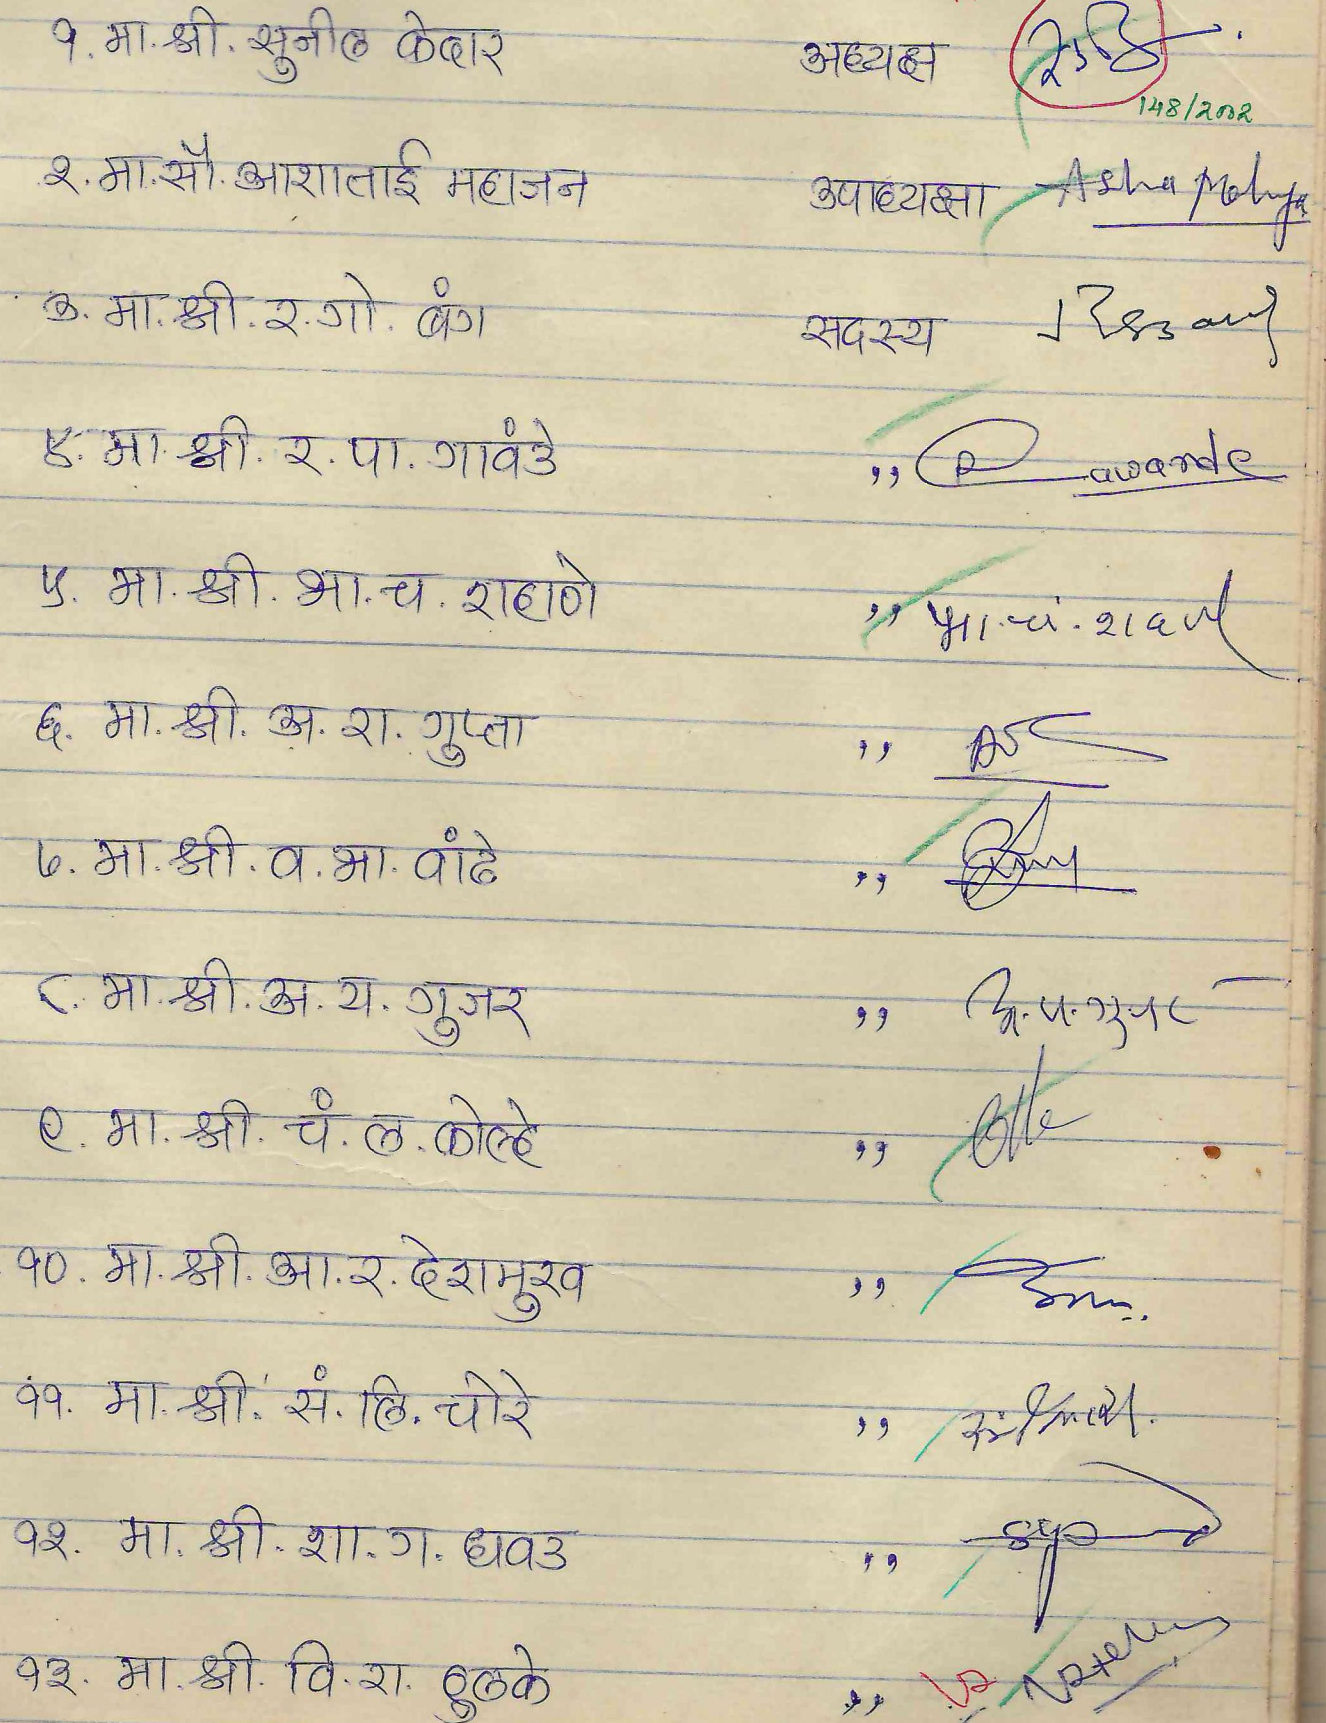 १. मा. श्री. सुनील केदार अध्यक्ष
148/2002
२. मा. सौ. आशाताई महाजन उपाध्यक्षा Asha
३. मा. श्री. र. गो. बंग सदस्य
४. मा. श्री. र. पा. गावंडे ,, awande
५. मा. श्री. भा. च. शहाणे ,, भा. चं.
६. मा. श्री. अ. रा. गुप्ता ,,
७. मा. श्री. व. भा. वांढे ,,
८. मा. श्री. अ. य. गुजर ,,
९. मा. श्री. चं. ल. कोल्हे ,,
१०. मा. श्री. आ. र. देशमुख ,,
११. मा. श्री. सं. लि. चोरे ,,
१२. मा. श्री. शा. ग. धवड ,,
१३. मा. श्री. वि. रा. ठुलके ,,